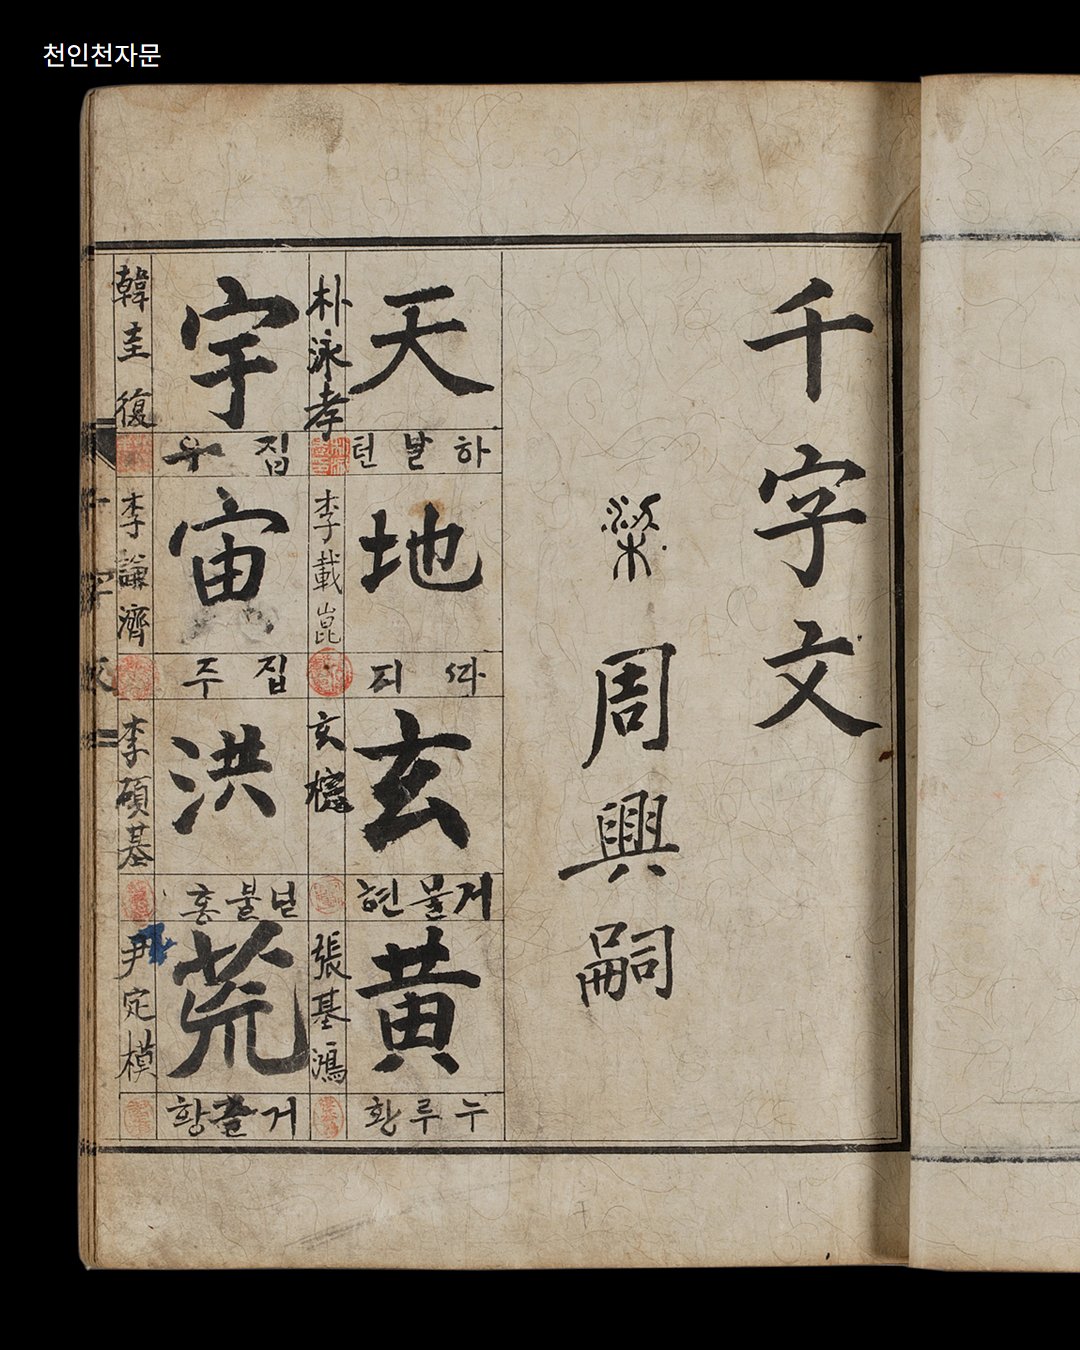 천인천자문
千字文
梁 周興嗣
天
하날텬
朴泳孝
地
ᄯᅡ디
李載崑
玄
거믈현
玄檍
黃
누루황
張基鴻
宇
집우
韓圭復
宙
집주
李謙濟
洪
널불홍
李碩基
荒
거츨황
尹定模